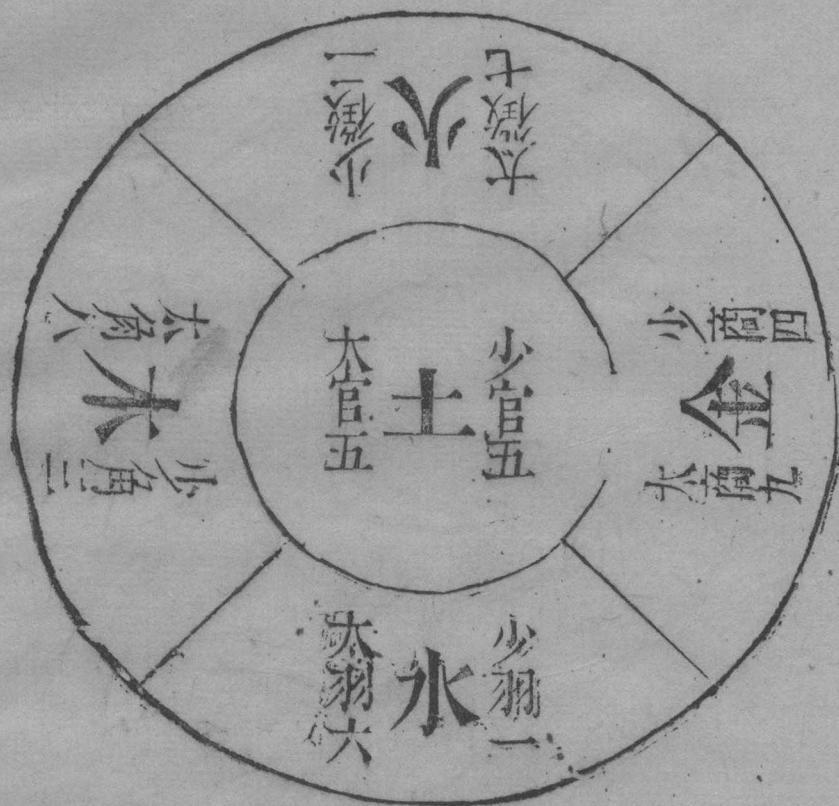 太徵七
火
少徵二
少商四
金
太商九
少宮五
土
大宮五
太角八
木
少角三
少羽一
水
太羽六